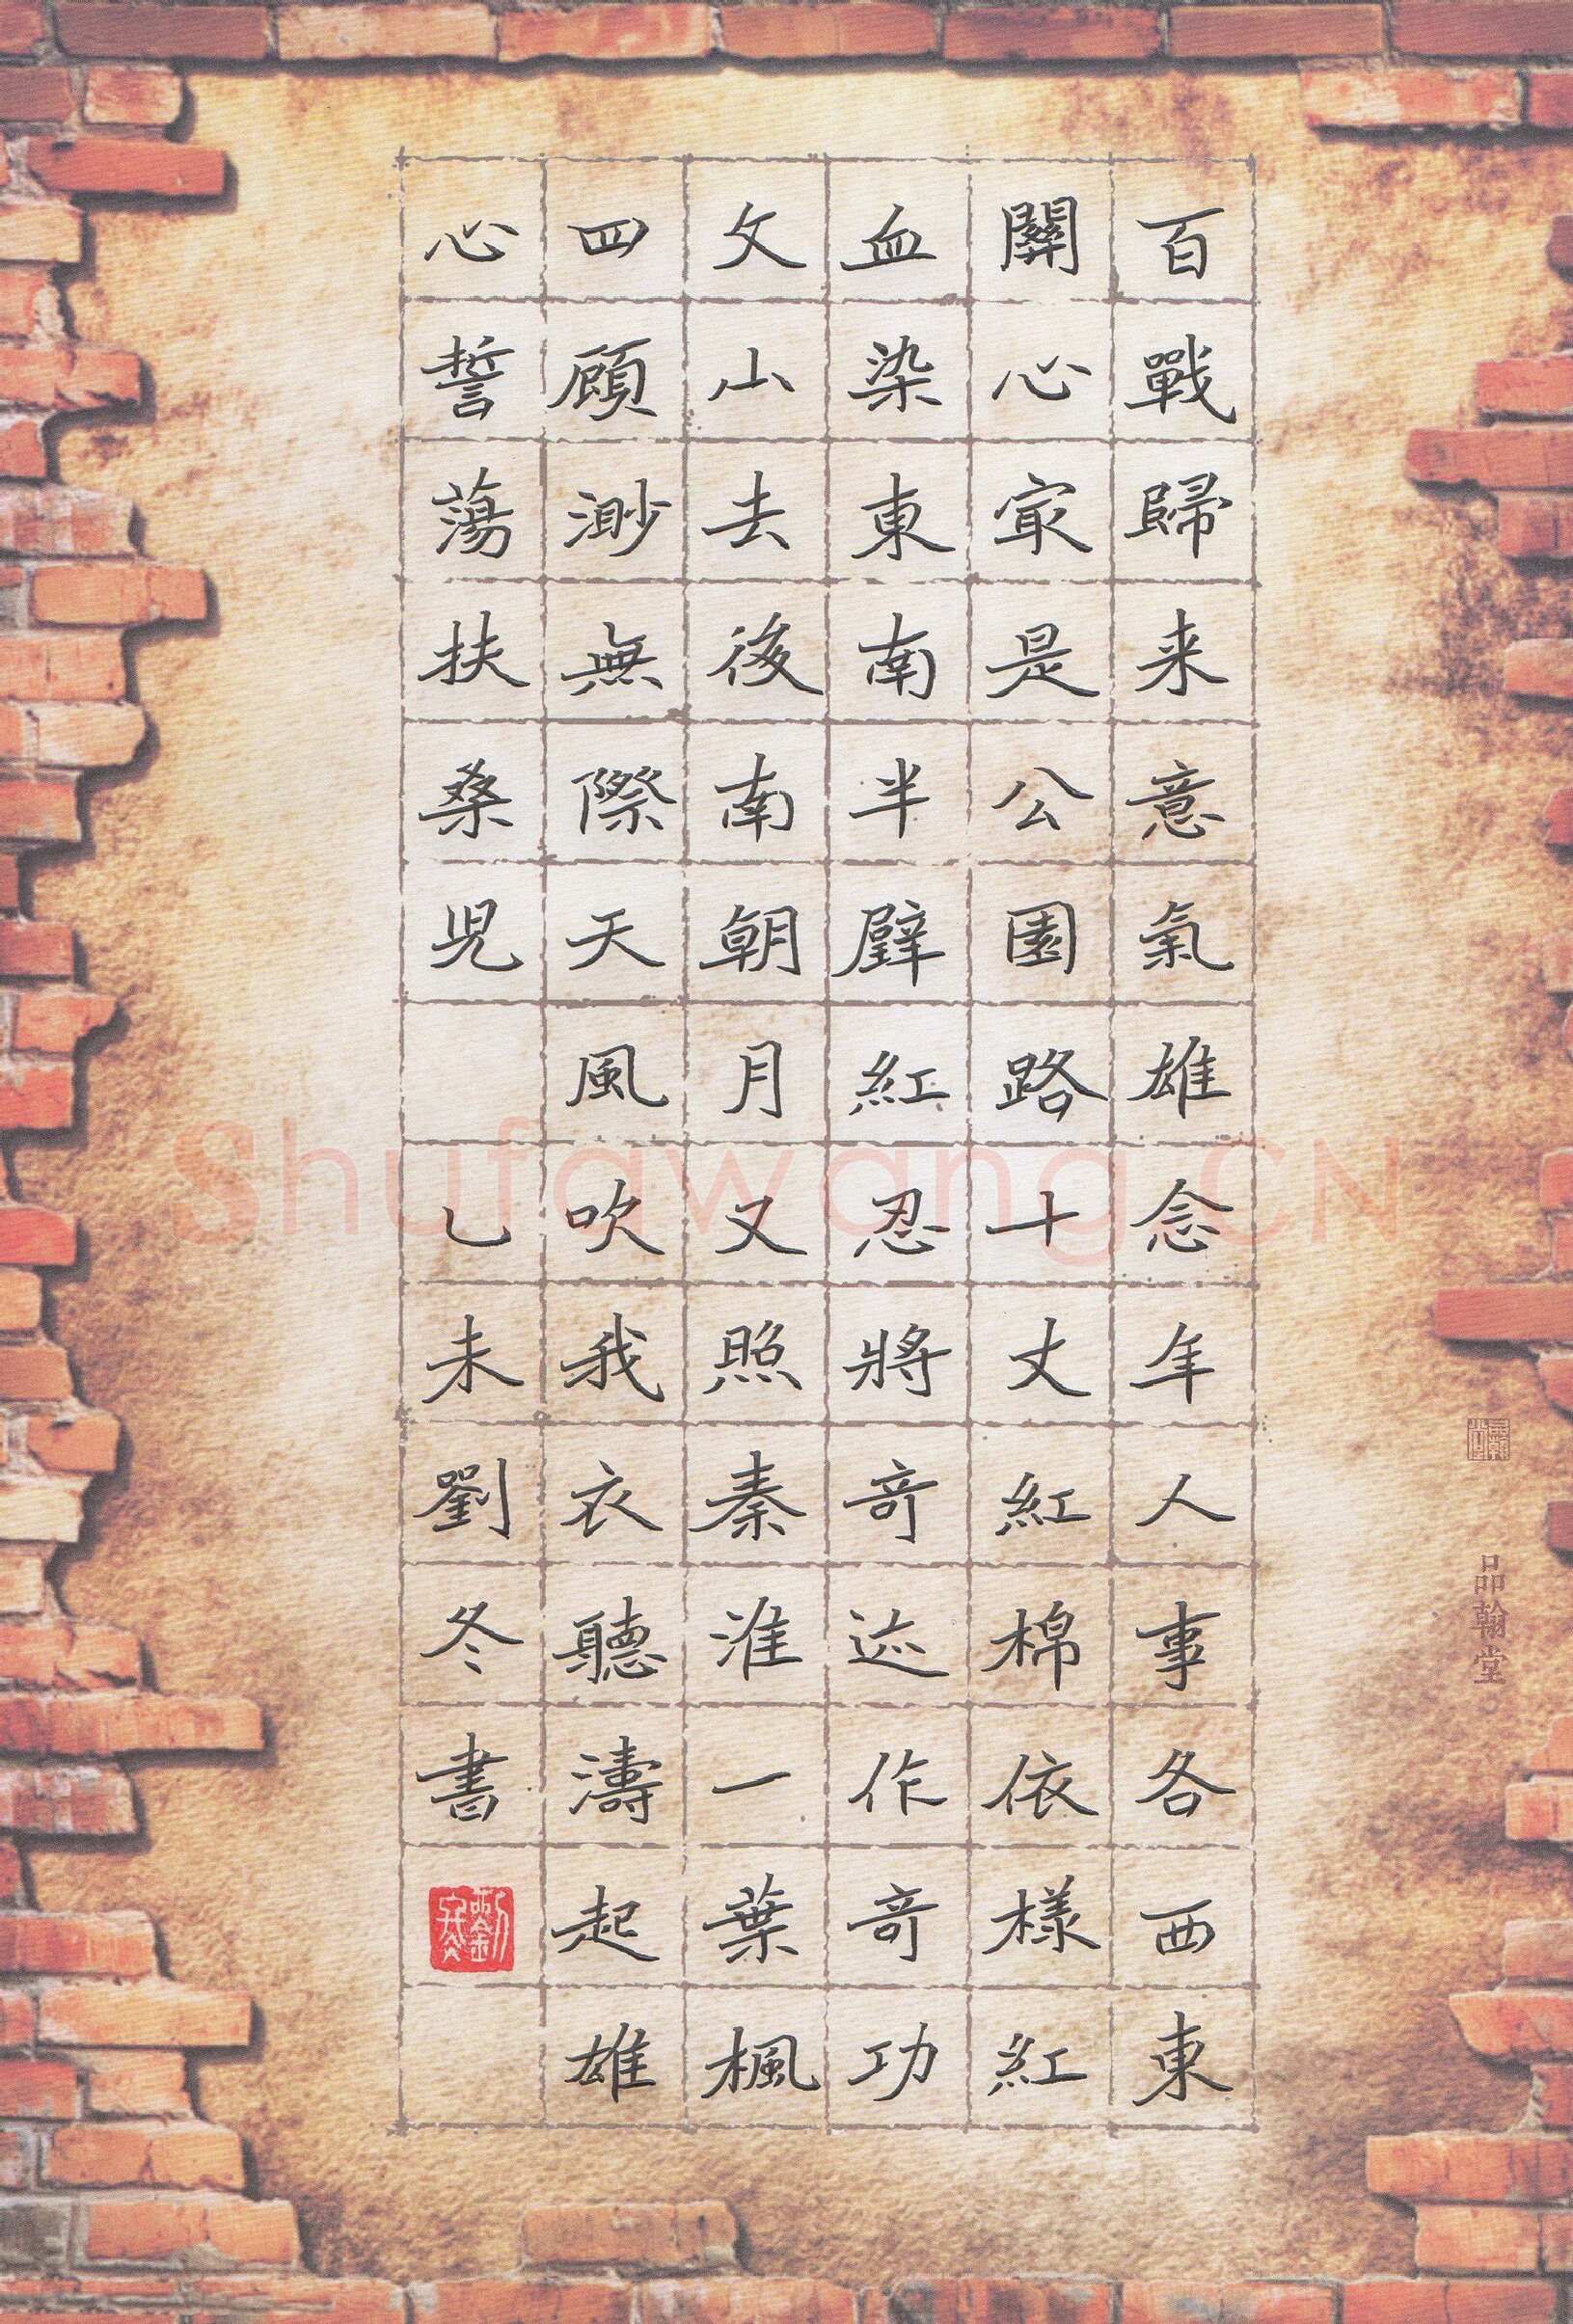 百戰歸来意氣雄念年人事各西東
關心冣是公園路十丈紅棉依樣紅
血染東南半壁紅忍將奇迹作奇功
文山去後南朝月又照秦淮一葉楓
四顧渺無際天風吹我衣聽濤起雄
心誓蕩扶桑児
乙未劉冬書
品翰堂
Shufawang.CN